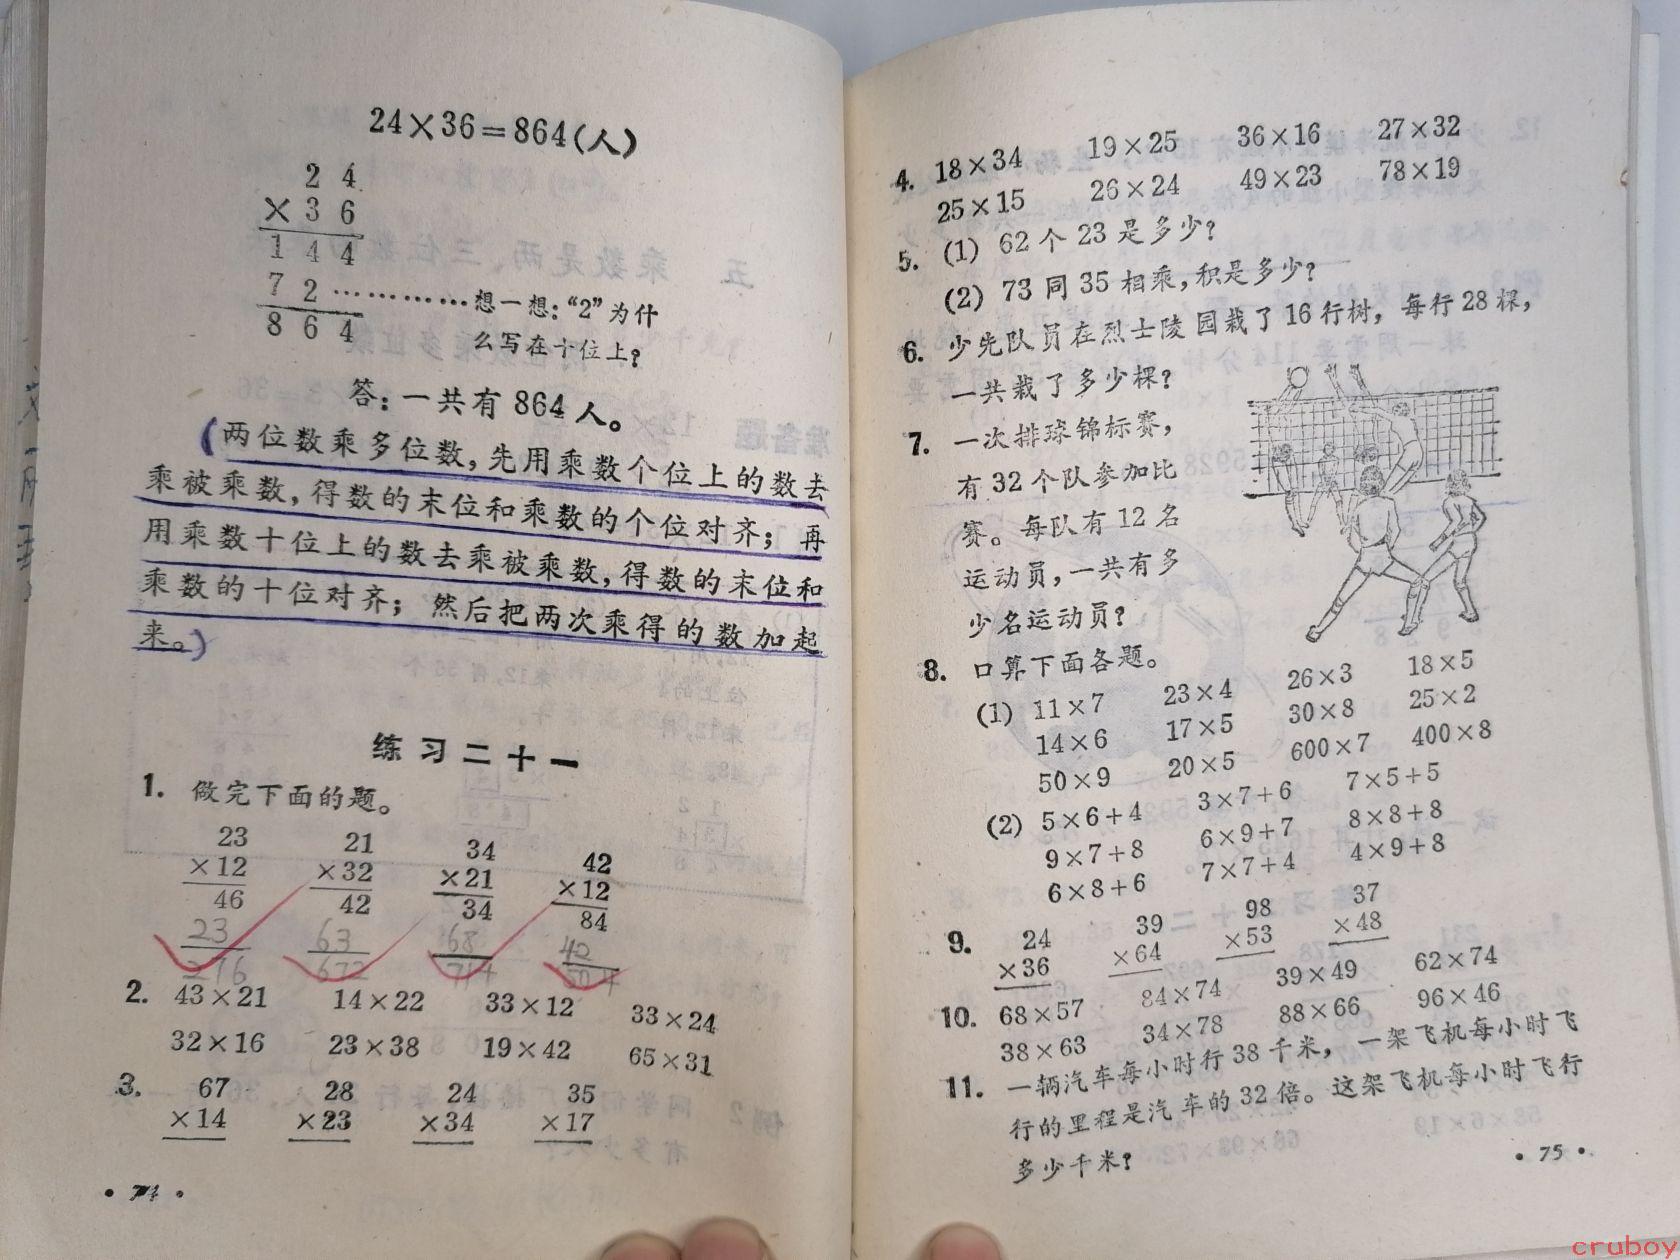 24×36=864(人)
2 4
×3 6
1 4 4
7 2 …………想一想:“2”为什
8 6 4 么写在十位上?
答:一共有 864 人。
(两位数乘多位数,先用乘数个位上的数去
乘被乘数,得数的末位和乘数的个位对齐;再
用乘数十位上的数去乘被乘数,得数的末位和
乘数的十位对齐;然后把两次乘得的数加起
来。)
练习二十一
1. 做完下面的题。
23 21 34 42
×12 ×32 ×21 ×12
46 42 34 84
23 63 68 42
276 672 714 504
2. 43×21 14×22 33×12 33×24
32×16 23×38 19×42 65×31
3. 67 28 24 35
×14 ×23 ×34 ×17
· 74 ·
4. 18×34 19×25 36×16 27×32
25×15 26×24 49×23 78×19
5. (1) 62 个 23 是多少?
(2) 73 同 35 相乘,积是多少?
6. 少先队员在烈士陵园栽了 16 行树,每行 28 棵,
一共栽了多少棵?
7. 一次排球锦标赛,
有 32 个队参加比
赛。每队有 12 名
运动员,一共有多
少名运动员?
8. 口算下面各题。
(1) 11×7 23×4 26×3 18×5
14×6 17×5 30×8 25×2
50×9 20×5 600×7 400×8
(2) 5×6+4 3×7+6 7×5+5
9×7+8 6×9+7 8×8+8
6×8+6 7×7+4 4×9+8
9. 24 39 98 37
×36 ×64 ×53 ×48
10. 68×57 84×74 39×49 62×74
38×63 34×78 88×66 96×46
11. 一辆汽车每小时行 38 千米,一架飞机每小时飞
行的里程是汽车的 32 倍。这架飞机每小时飞行
多少千米?
· 75 ·
cruboy